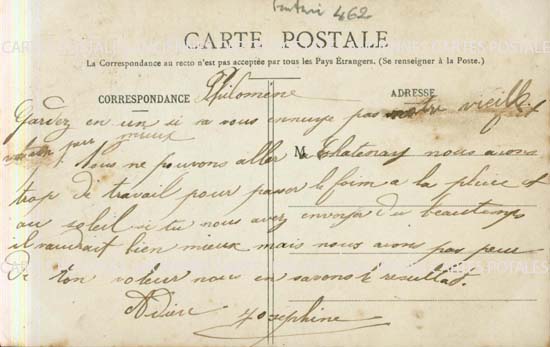 462
CARTE POSTALE
La Correspondance au recto n'est pas acceptée par tous les Pays Étrangers. (Se renseigner à la Poste.)
CORRESPONDANCE
ADRESSE
Philomene
Gardez en un si sa vous ennuye pas notre vieille
mieux
Nous ne pouvons aller M Chatenay nous avons
trop de travail pour passer le foim a la pluie et
au soleil si tu nous avez envoyer du beautemps
il vaudrait bien mieux mais nous avons pas peur
De ton voleur nous en savons le resultat.
Adieu Josephine